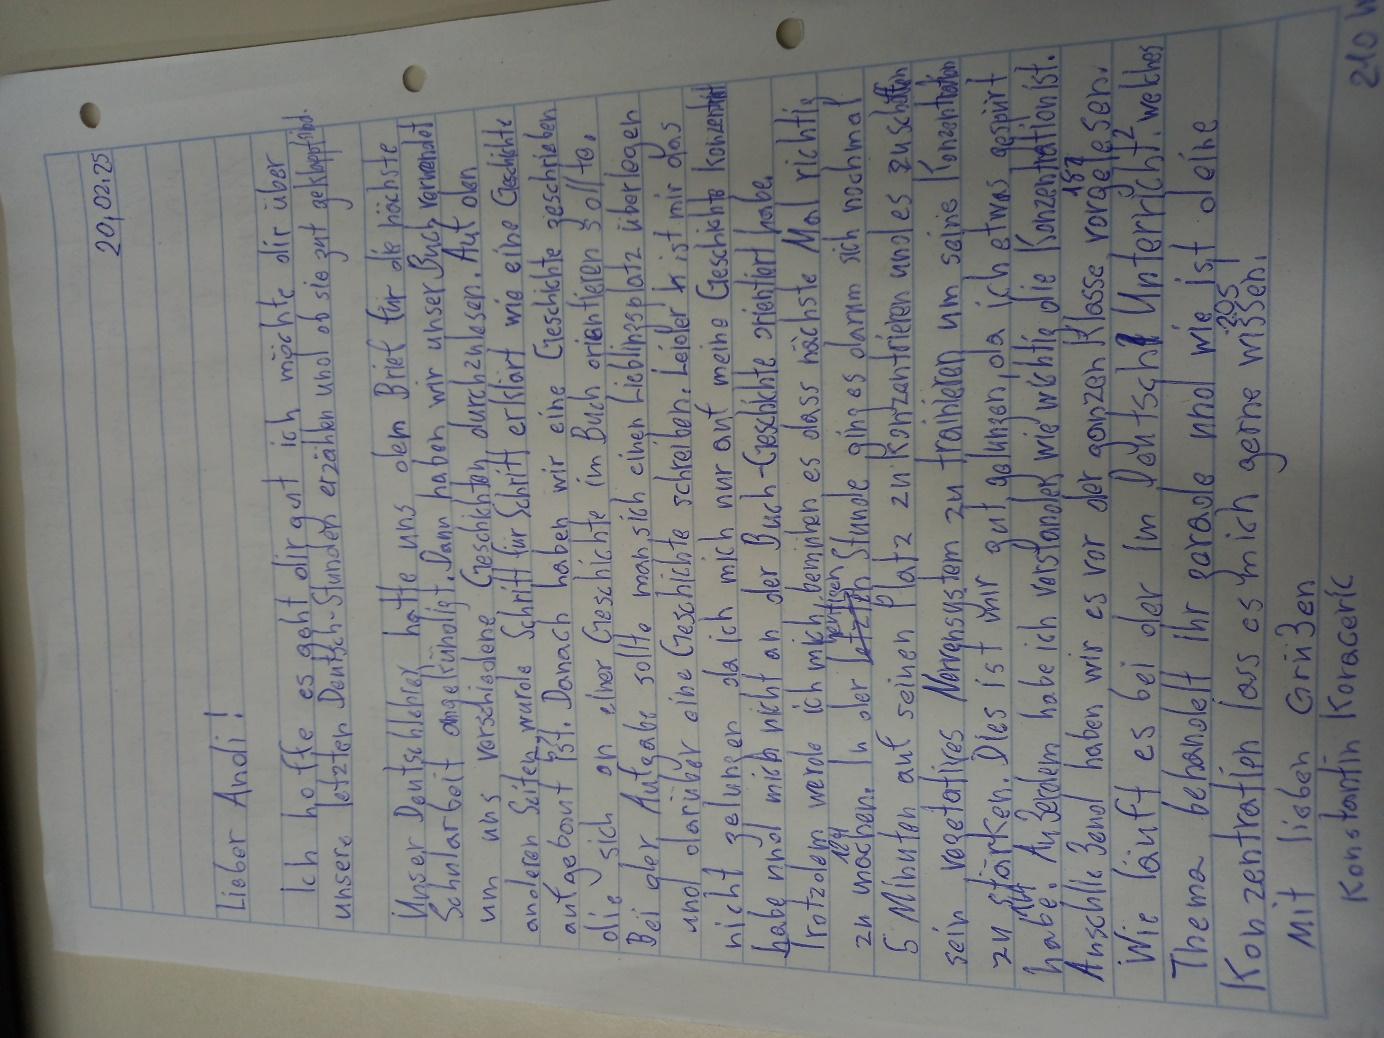 20.02.25
Lieber Andi!
Ich hoffe es geht dir gut ich möchte dir über
unsere letzten Deutsch-Stunden erzählen und ob sie gut geklappt sind.
Unser Deutschlehrer hatte uns dem Brief für die nächste
Schularbeit angekündigt. Dann haben wir unser Buch verwendet
um uns verschiedene Geschichten durchzulesen. Auf den
anderen Seiten wurde Schritt für Schritt erklärt wie eine Geschichte
aufgebaut ist. Danach haben wir eine Geschichte geschrieben
die sich an einer Geschichte im Buch orientieren sollte.
Bei der Aufgabe sollte man sich einen Lieblingsplatz überlegen
und darüber eine Geschichte schreiben. Leider ist mir das
nicht gelungen da ich mich nur auf meine Geschichte konzentriert
habe und mich nicht an der Buch-Geschichte orientiert habe.
Trotzdem werde ich mich bemühen es dass nächste Mal richtig
zu machen. In der heutigen Stunde ging es darum sich nochmal
124
5 Minuten auf seinen Platz zu konzentrieren und es zu schaffen
sein vegetatives Nervensystem zu trainieren um seine Konzentration
zu stärken. Dies ist mir gut gelungen da ich etwas gespürt
habe. Außerdem habe ich verstanden wie wichtig die Konzentration ist.
Anschließend haben wir es vor der ganzen Klasse vorgelesen.
Wie läuft es bei der im Deutsch Unterricht? welches
Thema behandelt ihr gerade und wie ist deine
Konzentration lass es mich gerne wißen!
205
Mit lieben Grüßen
Konstantin Kovaceric
210 W